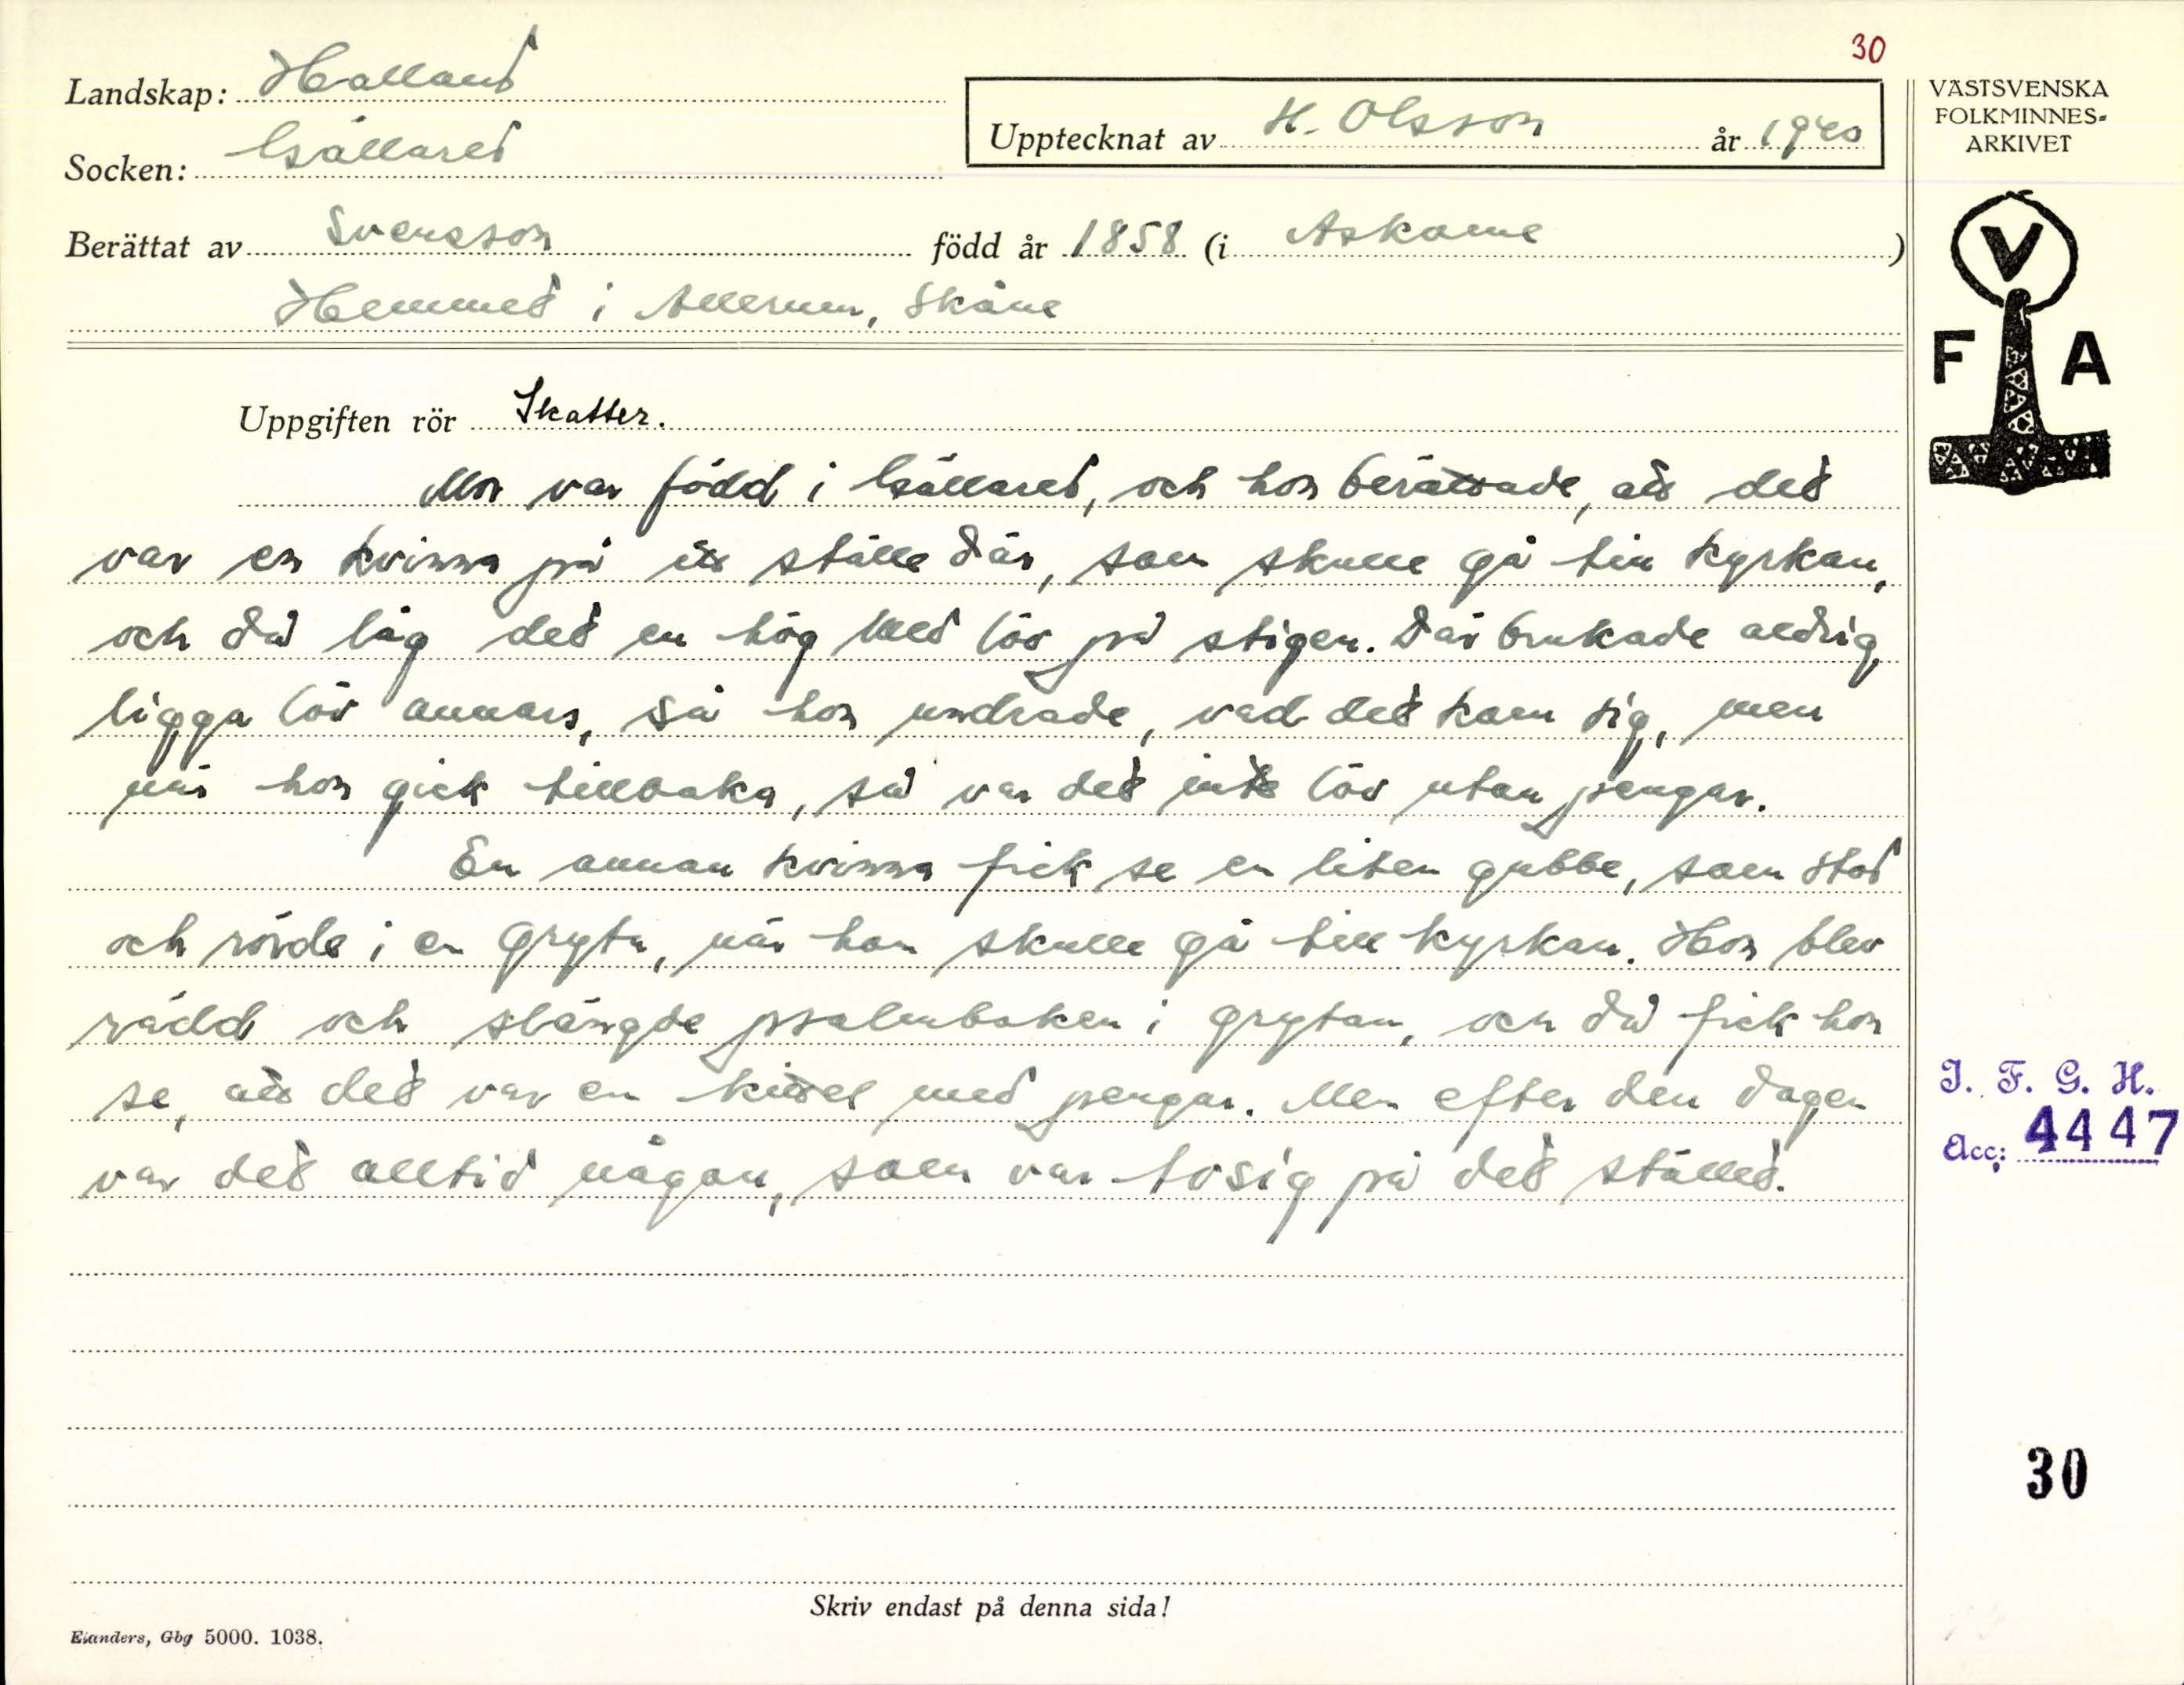 30
Landskap: Halland
Upptecknat av H. Olsson år 1940
Socken: Gällared
Berättat av Svensson född år 1858 (i Askome)
Hemmet i Allerum, Skåne
VÄSTSVENSKA
FOLKMINNES-
ARKIVET
V
F A
Uppgiften rör Skatter.
Mor var född i Gällared, och hon berättade, att det
var en kvinna på ett ställe där, som skulle gå till kyrkan,
och då låg det en hög med löv på stigen. Där brukade aldrig
ligga löv annars, så hon undrade, vad det kom sig, men
när hon gick tillbaka, så var det inte löv utan pengar.
En annan kvinna fick se en liten gubbe, som stod
och rörde i en gryta, när hon skulle gå till kyrkan. Hon blev
rädd och slängde psalmboken i grytan, och då fick hon
se, att det var en kittel med pengar. Men efter den dagen
var det alltid någon, som var tosig på det stället.
I. F. G. H.
Acc: 4447
30
Skriv endast på denna sida!
Elanders, Gbg 5000. 1038.